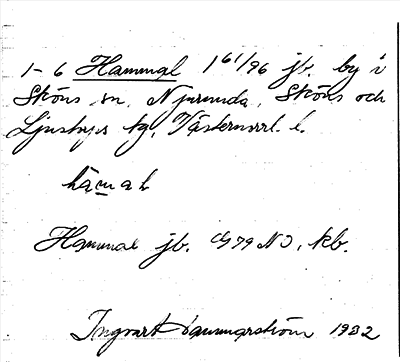 1-6 Hammal 1 61/96 jb. by i
Sköns sn, Njurunda, Sköns och
Ljustorps tg, Västernorrl. l.
hamal
Hammal jb. 79 NJ, kb.
Ingvart Hammarström 1932